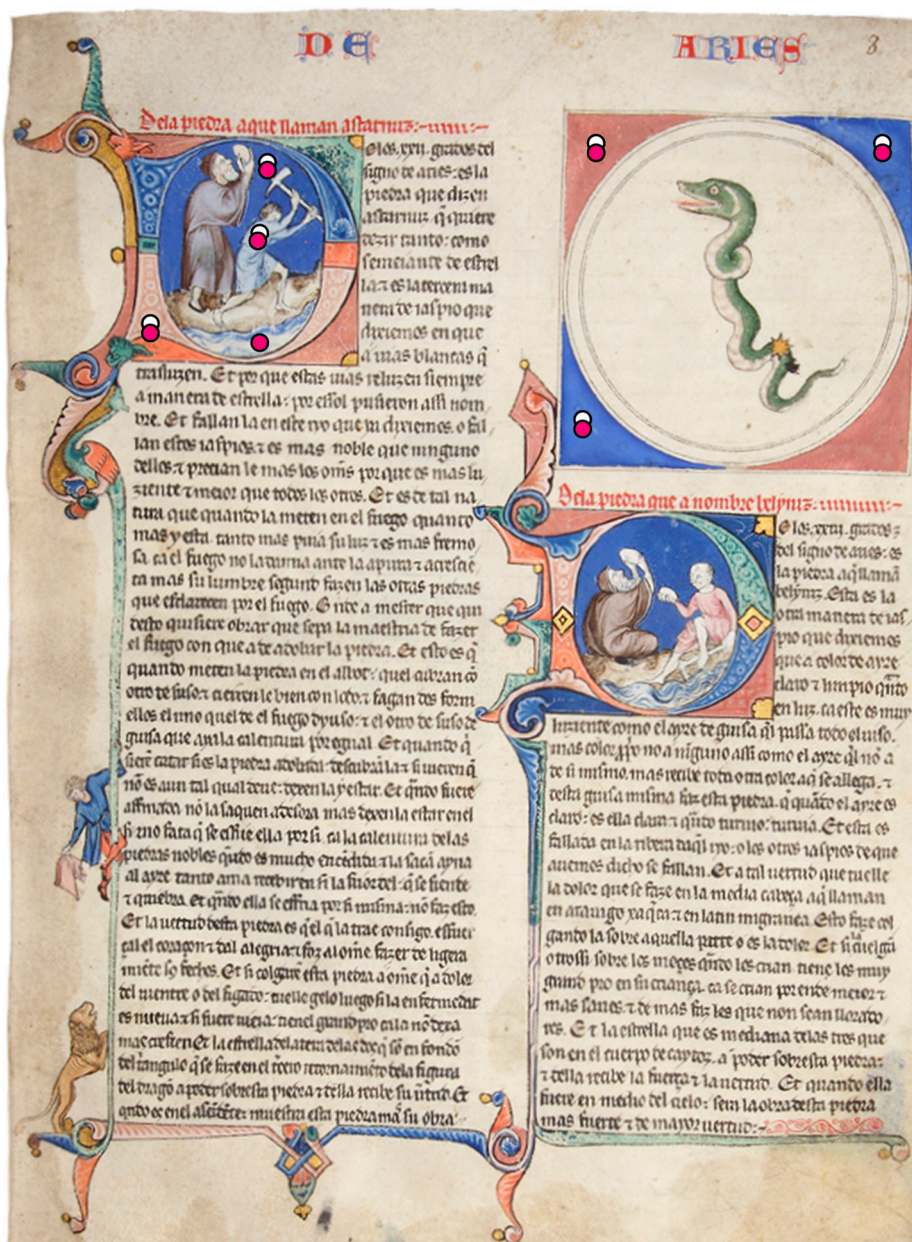 DE ARIES
8
Dela piedra aque llaman astarnuz:
E los .xxii. grados del
signo de aries: es la
piedra que dizen
astarnuz. q̃ quiere
dezir tanto: como
semeiante de estrel
la: ⁊ es la tercera ma
nera de iaspio que
dixiemos en que
a uias blancas q̃
trasluzen. Et por que estas uias reluzen siempre
a manera de estrella: por esso l pusieron assi nom
bre. Et fallan la en este rio que ia dixiemos. o fal
lan estos iaspios: ⁊ es mas noble que ninguno
dellos: ⁊ precian le mas los om̃s por que es mas lu
ziente ⁊ meior que todos los otros. Et es de tal na
tura que quando la meten en el fuego quanto
mas y esta. tanto mas pura su luz ⁊ es mas fermo
sa. ca el fuego no la danna ante la apura ⁊ acrescie
ta mas su lumbre segund fazen las otras piedras
que esclarecen por el fuego. Onde a mester que qui
desto quisiere obrar que sepa la maestria de fazer
el fuego con que a de adobar la piedra. Et esto es q̃
quando meten la piedra en el
otro de suso ⁊ cierren le bien con lodo: ⁊ fagan dos forn
ellos el uno quel de el fuego dyuso: ⁊ el otro de suso de
guisa que aya la calentura por egual. Et quando q̃
nõ es aun tal qual deue: dexen la y estar. Et q̃ndo fuere
affinada. nõ la saquen adesora mas dexen la estar en el
piedras nobles
al ayre. tanto ama recebir en si la
⁊ quiebra. Et q̃ndo ella se esfria por si misma: nõ faz esto.
Et la uertud desta piedra es q̃ el q̃ la trae consigo. esfuer
çal el coraçon ⁊ dal alegria: ⁊ faz al ome fazer de ligera
miẽte so fechos. Et si colgarẽ esta piedra a ome q̃ a dolor
del uientre o del figado: tuelle gelo luego si la enfermedat
es nueua: ⁊ si fuere uieia: tienel grand pro ca la nõ dexa
mas crescer. Et la estrella
del triangulo q̃ se faze en el tercio retornamiẽto dela figura
del dragõ a poder sobresta piedra ⁊ della recibe su uirtud. Et
q̃ndo es en el ascẽdẽte: muestra esta piedra mas su obra:
Dela piedra que a nombre belyniz:
E los .xxiii. grados:
del signo de aries: es
la piedra aq̃ llamã
belyniz. Esta es la
otra manera de ias
pio que dixiemos
que a color de ayre
claro ⁊ limpio q̃nto
en luz. ca este es muy
luziente como el ayre de guisa q̃l passa todo el uiso.
mas color pro no a ninguno assi como el ayre q̃l nõ a
de si mismo. mas recibe tota otra color aq̃ se allega. ⁊
desta guisa misma faz esta piedra. q̃ quãdo el ayre es
claro: es ella clara: ⁊ q̃ndo turuio: turuia. Et esta es
fallada en la ribera daq̃l rio: o los otros iaspios de que
auemos dicho se fallan. Et a tal uertud que tuelle
la dolor que se faze en la media cabeça aq̃ llaman
en arauigo xaq̃ca: ⁊ en latin migranea. Esto faze col
gando la sobre aquella parte o es la dolor. Et si la cuelgã
otrossi sobre los moços q̃ndo los crian tiene les muy
grand pro en su criança. ca se crian por ende meior ⁊
mas sanos. ⁊ de mas faz les que non sean llorado
res. Et la estrella que es mediana delas tres que
son en el cuerpo de caytoz. a poder sobresta piedra:
⁊ della recibe la fuerça ⁊ la uertud. Et quando ella
fuere en medio del cielo: sera la obra desta piedra
mas fuerte ⁊ de mayor uertud: